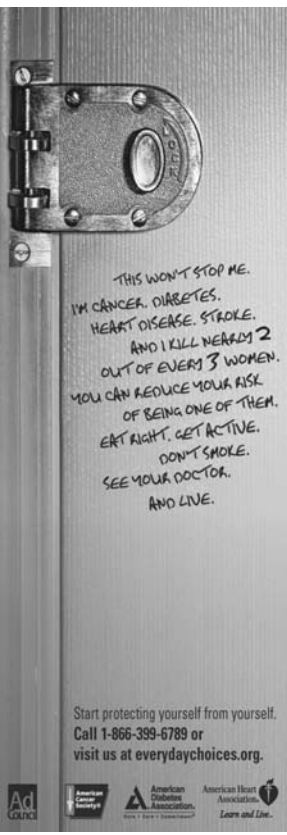 THIS WON'T STOP ME.
I'M CANCER. DIABETES.
HEART DISEASE. STROKE.
AND I KILL NEARLY 2
OUT OF EVERY 3 WOMEN.
YOU CAN REDUCE YOUR RISK
OF BEING ONE OF THEM.
EAT RIGHT. GET ACTIVE.
DON'T SMOKE.
SEE YOUR DOCTOR.
AND LIVE.
Start protecting yourself from yourself.
Call 1-866-399-6789 or
visit us at everydaychoices.org.
Ad
COUNCIL
American
Cancer
Society®
American
Diabetes
Association.
Cure • Care • Commitment®
American Heart
Association®
Learn and Live.